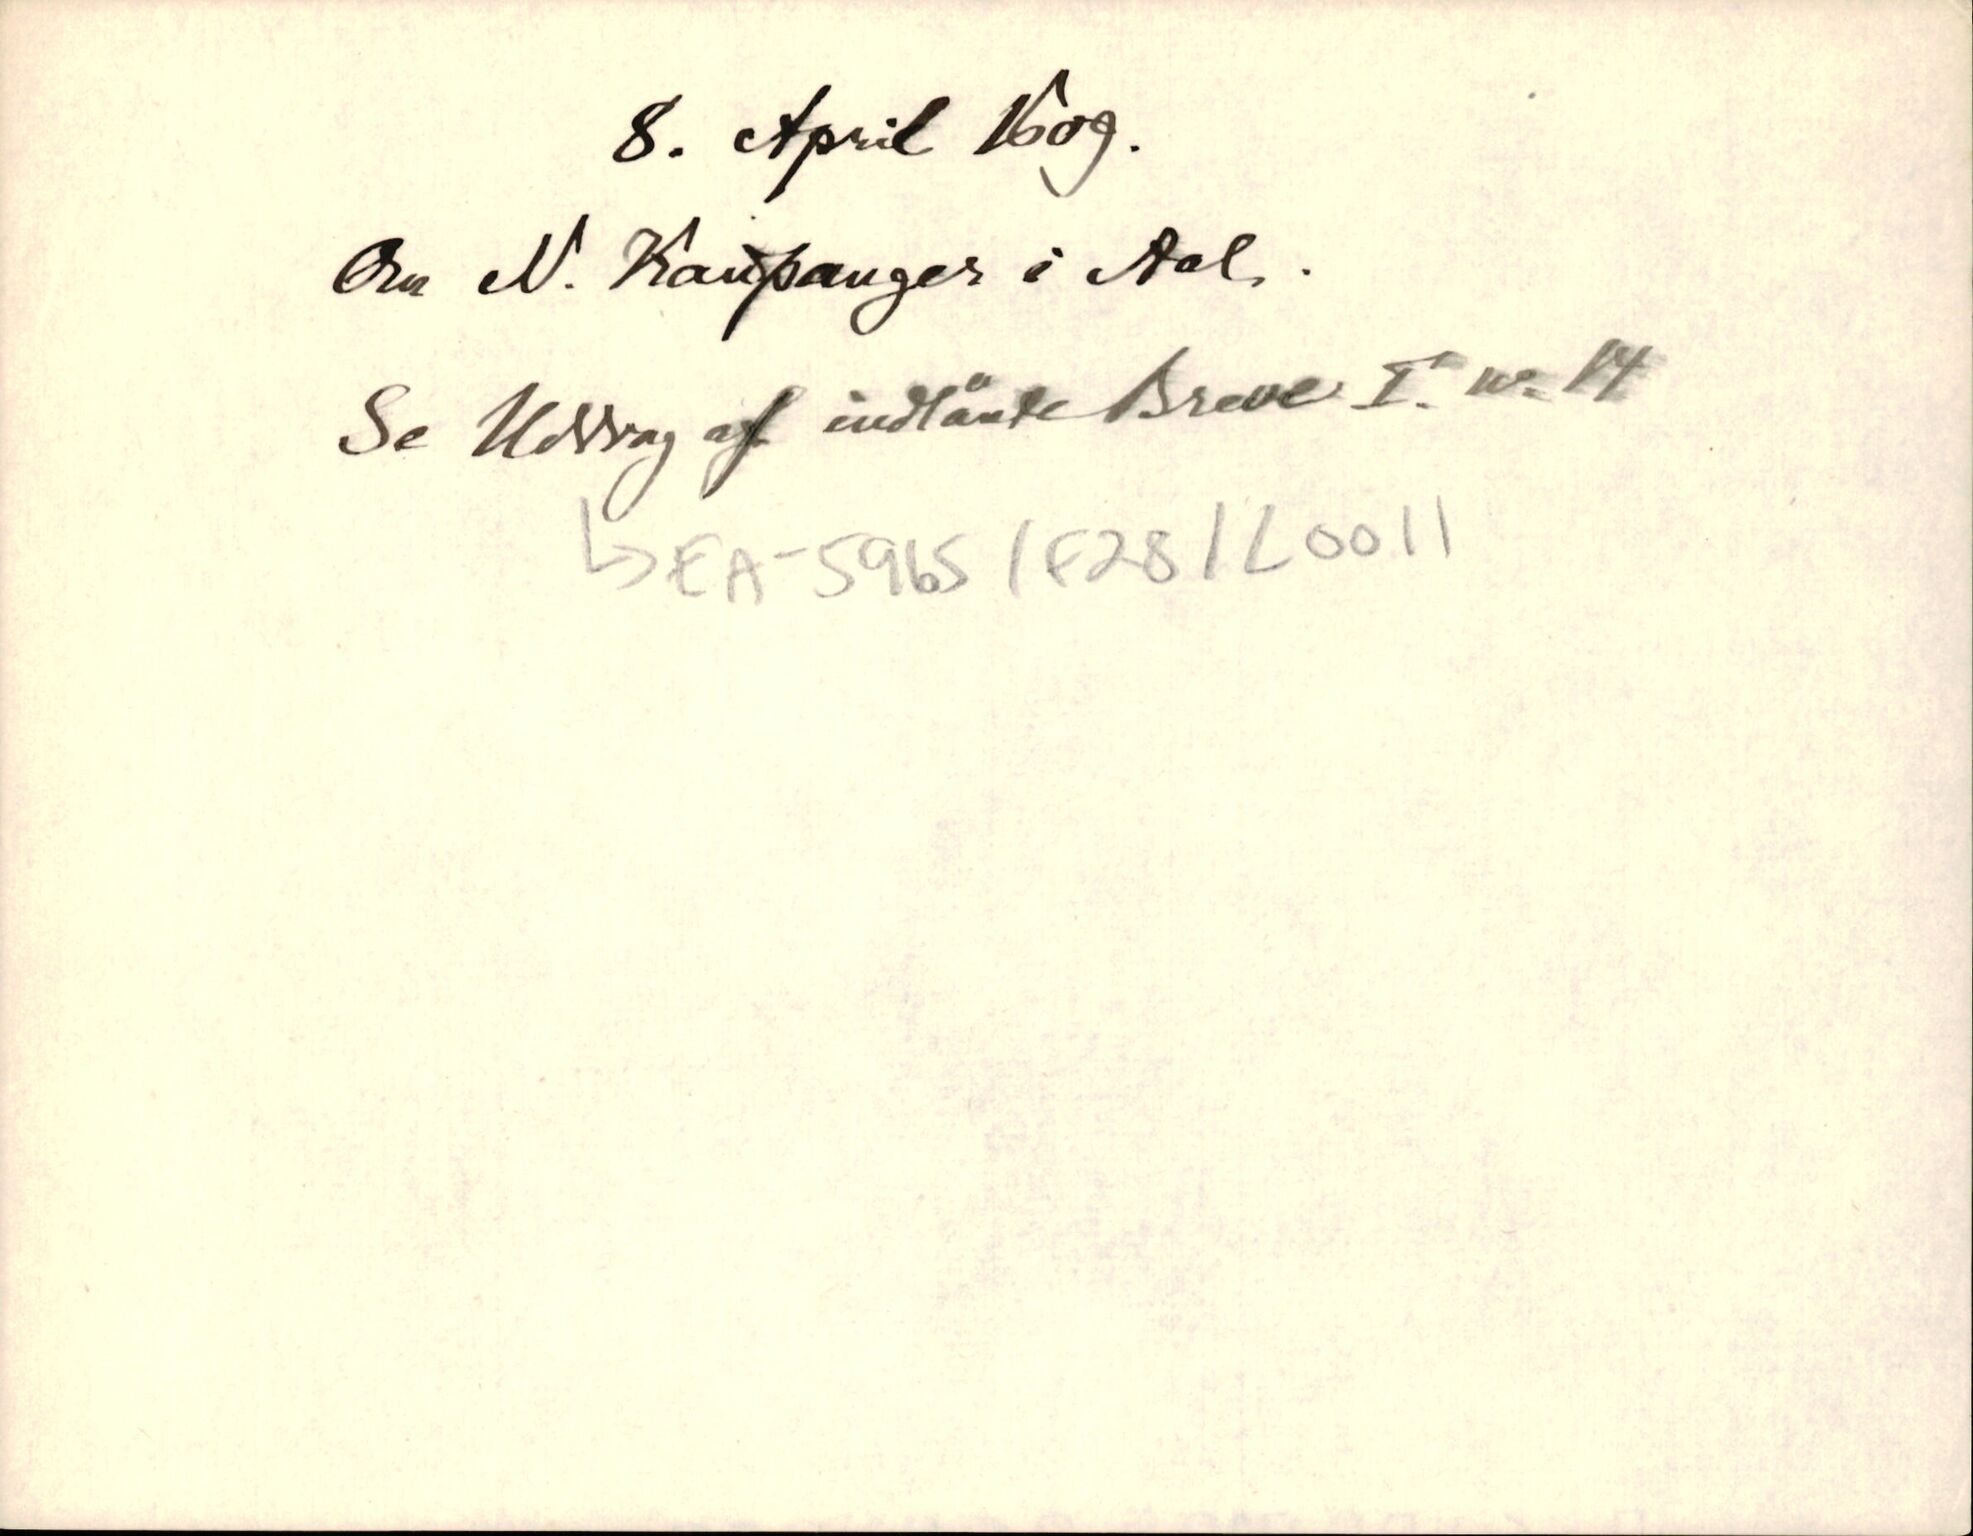 8. April 1609.
Om N. Kaupanger i Aal.
Se Uddrag af indlånte Breve I. no. 14
↳ EA-5965/F28/L0011